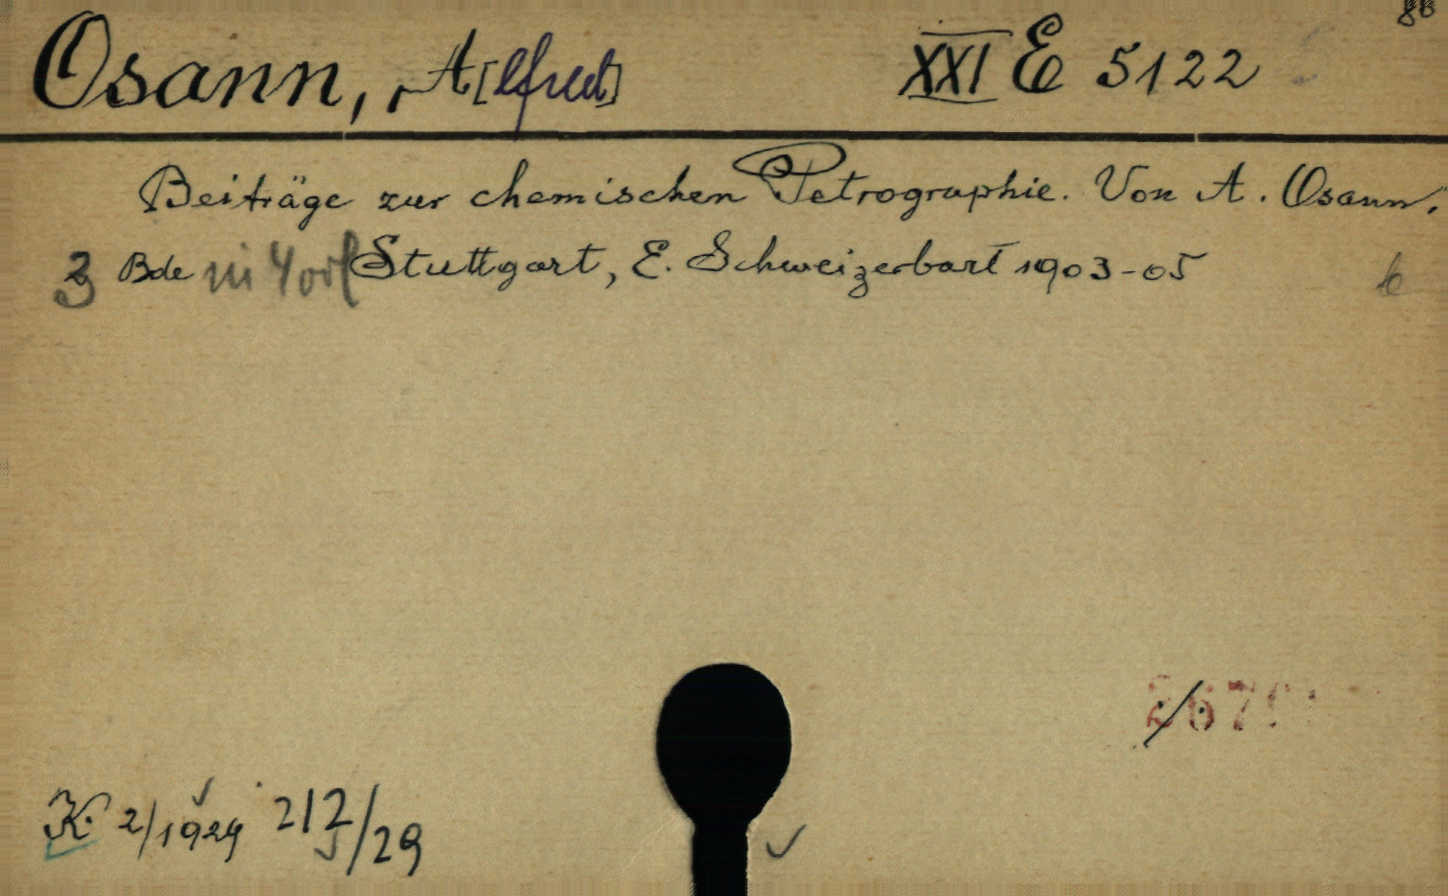 86
Osann, A[lfred] XXI E 5122
Beiträge zur chemischen Petrographie. Von A. Osann.
3 Bde Stuttgart, E. Schweizerbart 1903-05
K. 2/1929 212/29